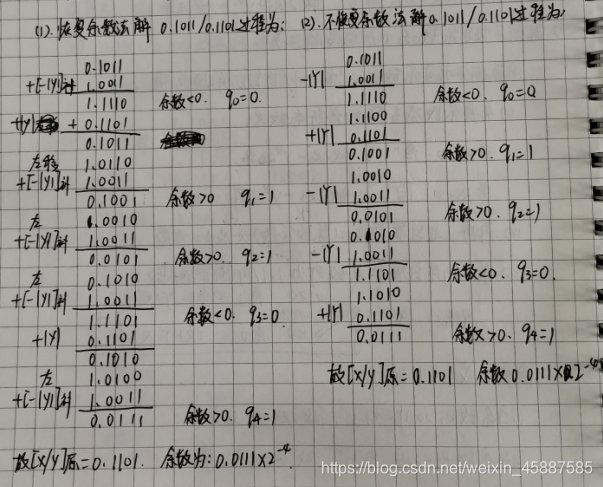 (1). 恢复余数法解 0.1011/0.1101过程为:
0.1011
+[-|Y|]补 1.0011
1.1110 余数<0. q0=0.
+|Y| + 0.1101
0.1011
左移 1.0110
+[-|Y|]补 1.0011
0.1001 余数>0 q1=1
左 1.0010
+[-|Y|]补 1.0011
0.0101 余数>0. q2=1
左 0.1010
+[-|Y|]补 1.0011
1.1101 余数<0. q3=0
+|Y| 0.1101
0.1010
左 1.0100
+[-|Y|]补 1.0011
0.0111 余数>0. q4=1
故[X/Y]原=0.1101. 余数为: 0.0111×2^-4
(2). 不恢复余数法解0.1011/0.1101过程为:
0.1011
-|Y| 1.0011
1.1110 余数<0. q0=0
1.1100
+|Y| 0.1101
0.1001 余数>0. q1=1
1.0010
-|Y| 1.0011
0.0101 余数>0. q2=1
0.1010
-|Y| 1.0011
1.1101 余数<0. q3=0.
1.1010
+|Y| 0.1101
0.0111 余数>0. q4=1
故[X/Y]原=0.1101 余数0.0111×2^-4
https://blog.csdn.net/weixin_45887585